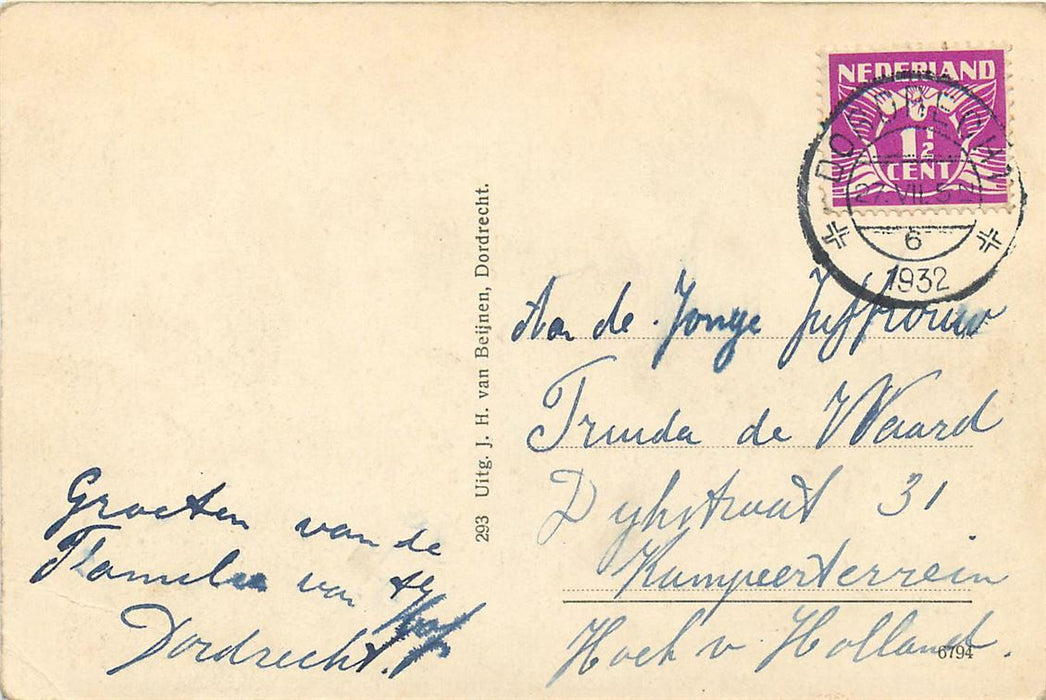 NEDERLAND
1½
CENT
DORDRECHT
27.VII.5-N
6
1932
293 Uitg. J. H. van Beijnen, Dordrecht.
Aan de Jonge Juffrouw
Truida de Waard
Dijkstraat 31
Kampeerterrein
Hoek v Holland.
6794
Groeten van de
Familie van
Dordrecht.